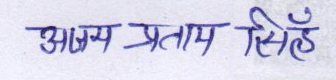 अजय प्रताप सिहँ